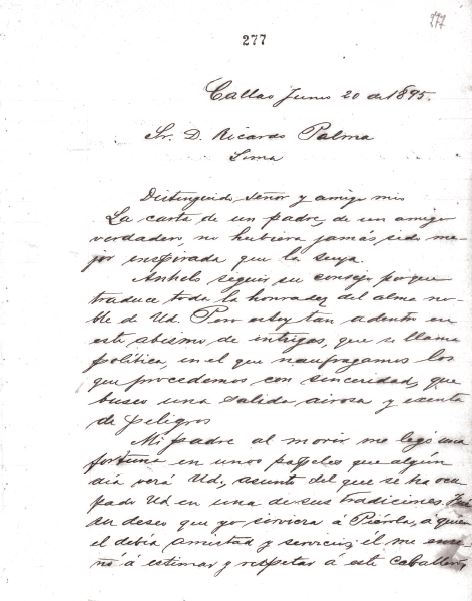 277
277
Callao Junio 20 de 1895.
Sr. D. Ricardo Palma
Lima
Distinguido señor y amigo mio
La carta de un padre, de un amigo
verdadero, no hubiera jamás sido me
jor inspirada que la suya.
Anhelo seguir su consejo porque
traduce toda la honradez del alma no-
ble de Ud. Pero estoy tan adentro en
este abismo de intrigas, que se llama
política, en el que naufragamos los
que procedemos con sinceridad, que
busco una salida airosa y exenta
de peligros
Mi padre al morir me legó una
fortuna en unos papeles que algún
dia verá Ud, asunto del que se ha ocu
pado Ud en una de sus tradiciones. Fué
su deseo que yo sirviera á Piérola, á quien
el debía amistad y servicios; él me ense
ñó á estimar y respetar á este caballero,